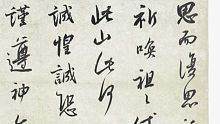 思而復思
祈喚祖
此山此河
誠惶誠恐
謹遵神